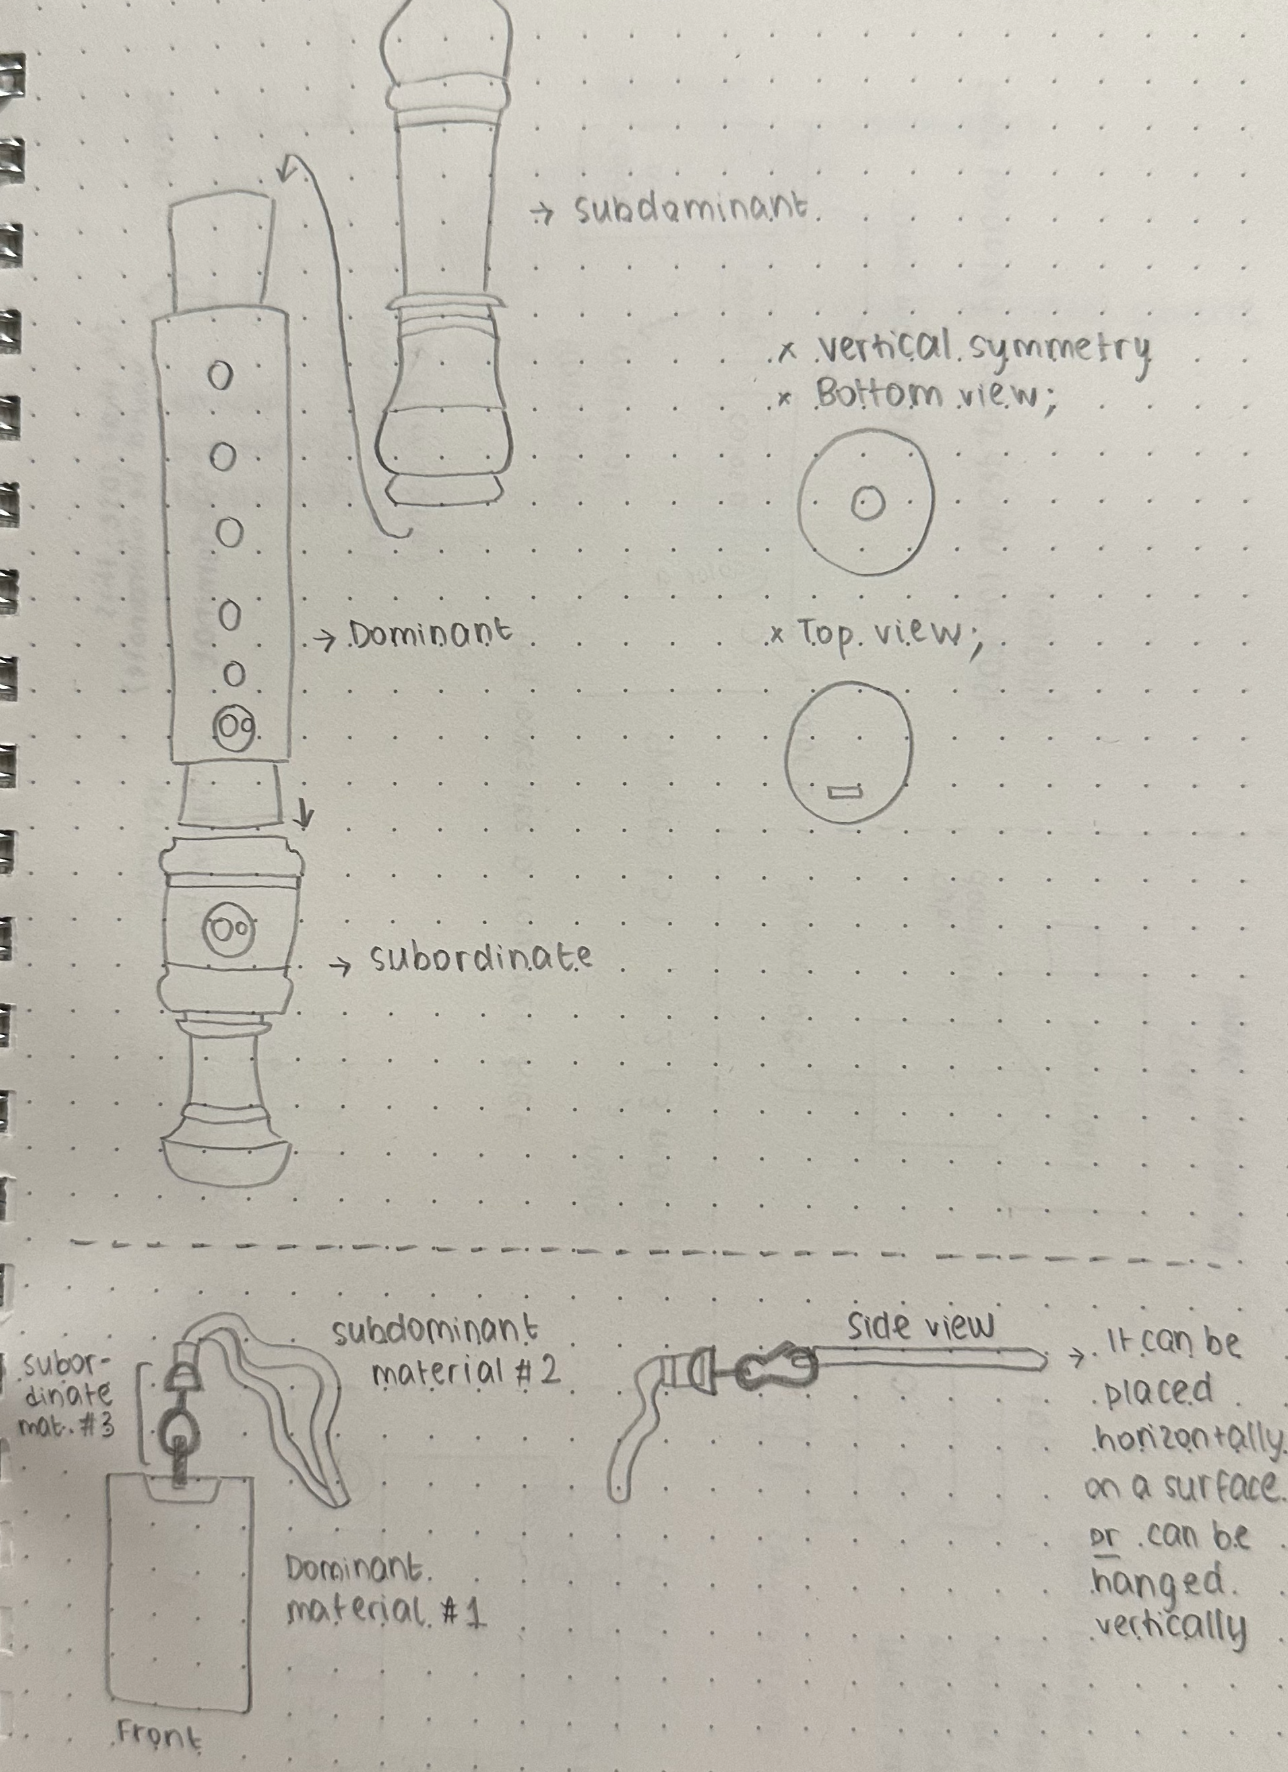 → subdominant
× vertical symmetry
× Bottom view;
→ Dominant
× Top view;
→ subordinate
subdominant
material #2
subor-
dinate
mat. #3
side view
→ It can be
placed
horizontally
on a surface
or can be
hanged
vertically
Dominant
material #1
Front